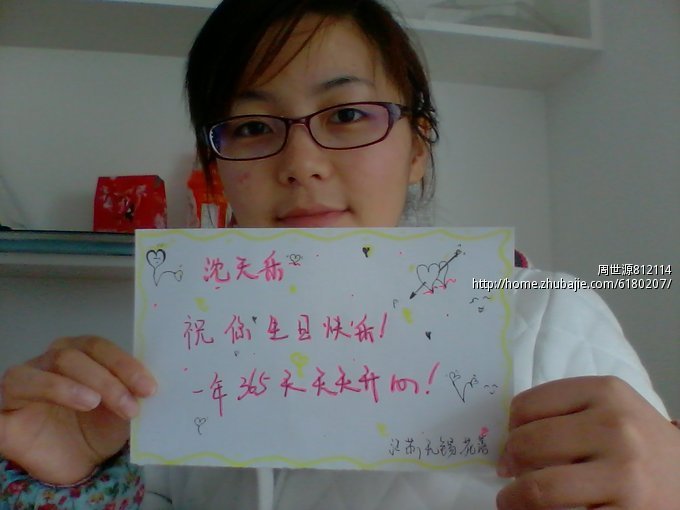 周世源812114
http://home.zhubajie.com/61802207/
沈天乐
祝你生日快乐!
一年365天天天开心!
江苏,无锡.花落